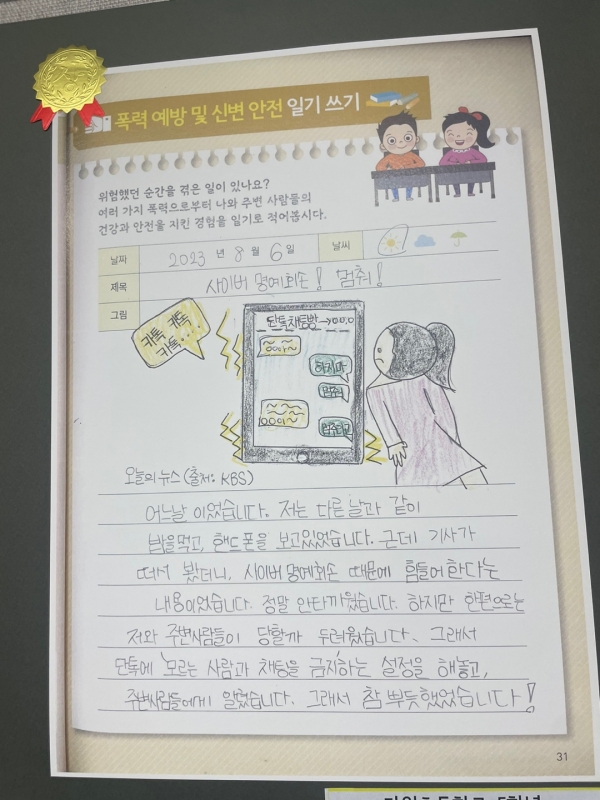 폭력 예방 및 신변 안전 일기 쓰기
위험했던 순간을 겪은 일이 있나요?
여러 가지 폭력으로부터 나와 주변 사람들의
건강과 안전을 지킨 경험을 일기로 적어봅시다.
날짜 2023 년 8 월 6 일 날씨
제목 사이버 명예회손! 멈춰!
그림
카톡 카톡
카톡...
단톡채팅방→0.0.0
00아~
하지마
멈춰
00아~
멈추라고
오늘의 뉴스 (출처: KBS)
어느날 이었습니다. 저는 다른날과 같이
밥을먹고, 핸드폰을 보고있었습니다. 근데 기사가
떠서 봤더니, 사이버명예회손 때문에 힘들어한다는
내용이었습니다. 정말 안타까웠습니다. 하지만 한편으로는
저와 주변사람들이 당할까 두려웠습니다. 그래서
단톡에 '모르는 사람과 채팅을 금지'하는 설정을 해놓고,
주변사람들에게 알렸습니다. 그래서 참 뿌듯했었습니다!
31